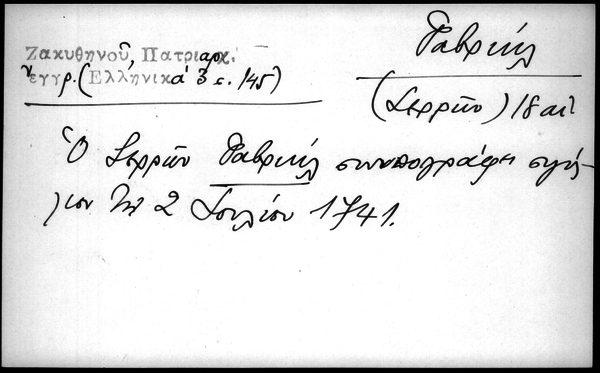 Ζακυθηνοῦ, Πατριαρχ.
ἔγγρ. (Ἑλληνικά 3 σ. 145)
Γαβριήλ
(Σερρῶν) 18 αἰ.
Ὁ Σερρῶν Γαβριήλ συνυπογράφει σιγίλ-
λιον τῇ 2 Ἰουλίου 1741.